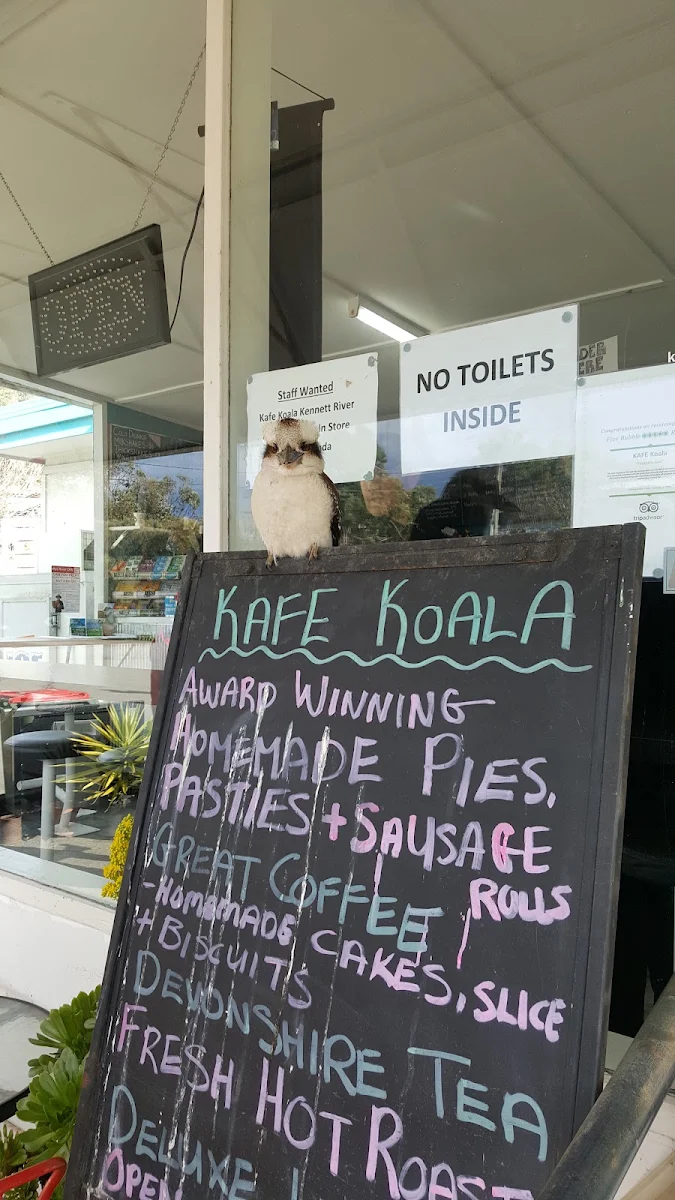 OPEN
Staff Wanted
Kafe Koala Kennett River
In Store
NO TOILETS
INSIDE
KAFE Koala
tripadvisor
KAFE KOALA
AWARD WINNING
HOMEMADE PIES,
PASTIES + SAUSAGE
ROLLS
GREAT COFFEE
-HOMEMADE CAKES, SLICE
+ BISCUITS
DEVONSHIRE TEA
FRESH HOT ROAST
DELUXE
OPEN